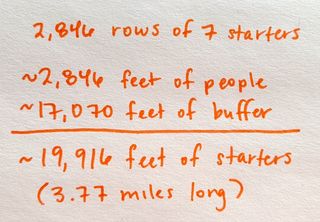 2,846 rows of 7 starters
~2,846 feet of people
~17,070 feet of buffer
~19,916 feet of starters
(3.77 miles long)